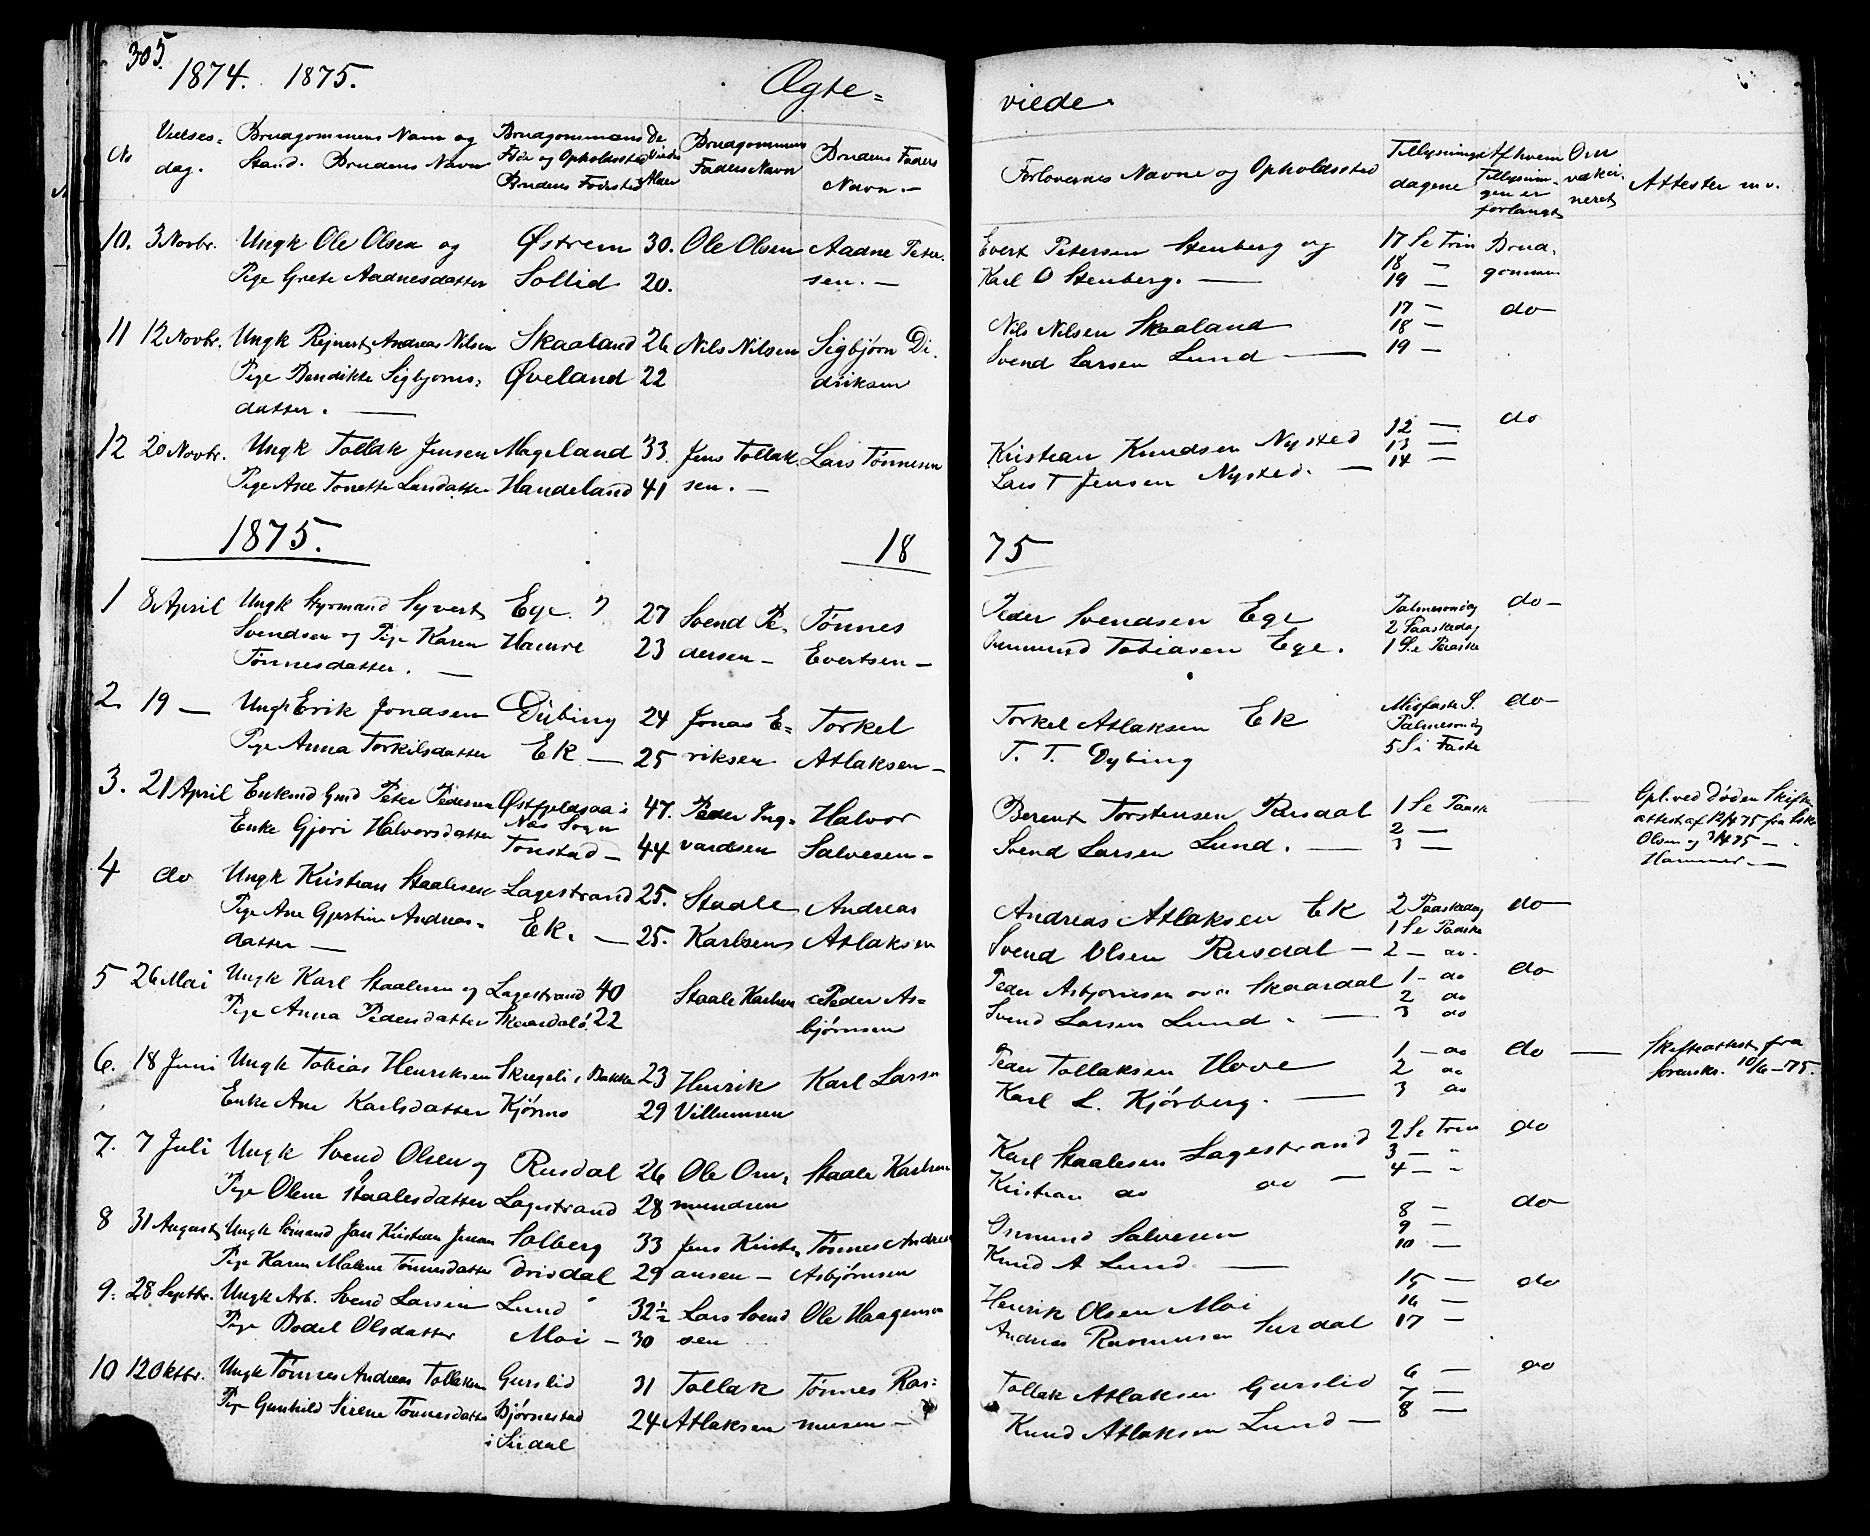 305.
1874. 1875.
Ægte=
viede.
No
Vielses=
dag.
Brudgommens Navn og
Stand. Brudens Navn
Brudgommens
Føde og Opholdssted
Brudens Fødested
De
Viedes
Alder
Brudgommens
Faders Navn
Brudens Faders
Navn.—
Forlovernes Navne og Opholdssted
Tillysnings
dagene
Af hvem
Tillysnin-
gen er
forlangt
Om
vakci-
neret
Attester m. v.
10. 3 Novbr. Ungk Ole Olsen og Østrem 30. Ole Olsen Aadne Peter-
Pige Grete Aadnesdatter Sollid 20. sen.—
Evert Petersen Stenberg og 17 Se Trin Brud-
Karl O Stenberg. — 18 — gommen
19 —
11 12 Novbr. Ungk Rejnert Andreas Nilsen Skaaland 26 Nils Nilsen Sigbjørn Di-
Pige Bendikte Sigbjørns- Øveland 22 driksen
datter. —
Nils Nilsen Skaaland 17 — do
Svend Larsen Lund — 18 —
19 —
12 20 Novbr. Ungk Tollak Jensen Mageland 33. Jens Tollak Lars Tønnesen
Pige Ane Tonette Larsdatter Handeland 41 sen. —
Kristian Knudsen Nysted 12 — do
Lars T Jensen Nysted. — 13 —
14 —
1875.
18 75
1 8 April Ungk Styrmand Syvert Ege 27 Svend Pe- Tønnes
Svendsen og Pige Karen Hamre 23 dersen — Evertsen —
Tønnesdatter. —
Peder Svendsen Ege Palmesøndag do —
Tobiasen Ege. 2 Paaskedag
1 Se Paaske
2. 19 — Ungk Erik Jonasen Dübing 24 Jonas E= Torkel
Pige Anna Torkilsdatter Ek — 25 riksen Atlaksen —
Torkel Atlaksen Ek Midfaste S. do —
T. T. Dybing Palmesøndag
5 Si Faste
3. 21 April Enkmd Gmd Peter Pedersen Østfjeldsaa i 47. Peder Ing= Halvor
Enke Gjøri Halvorsdatter Næs Sogn
Tonstad — 44 vardsen Salvesen —
Berent Torstensen Rusdal 1 Se Paask
Svend Larsen Lund. — 2 —
3 —
Opl. ved Døden Skifte
attest af 12/4 75 fra
Olsen og 3/4 75 —
Hammer —
4 do Ungk Kristian Staalesen Lagestrand 25. Staale Andreas
Pige Ane Gjestine Andreas= Ek. — 25. Karlsen Atlaksen
datter —
Andreas Atlaksen Ek 2 Paaskedag do —
Svend Olsen Rusdal — 1 Se Paaske
2 — do.
5 26 Mai Ungk Karl Staalesen og Lagestrand 40 Staale Karlsen Peder As=
Pige Anna Pedersdatter Skaardal 22 bjørnsen
Peder Asbjørnsen Skaardal 1 — do do
Svend Larsen Lund. — 2 do
3 do
6. 18 Juni Ungk Tobias Henriksen Skregeli, Bakke 23 Henrik Karl Larsen
Enke Ane Karlsdatter Kjørmo 29 Villumsen
Peder Tollaksen Hove 1 — do do —
Karl L. Kjørberg. — 2 do
3 do
Skifteattest fra
Sorenskr. 10/6 — 75.
7. 7 Juli Ungk Svend Olsen og Rusdal 26 Ole Om= Staale Karlsen
Pige Olene Staalesdatter Lagestrand 28 mundsen
Karl Staalesen Lagestrand 2 Se Trin do
Kristian do do — 3 — "
4 — "
8 31 August Ungk Sømand Jan Kristian Jensen Solberg 33 Jens Kristi= Tønnes Andreas
Pige Karen Malene Tønnesdatter Drivdal 29 ansen — Asbjørnsen
Osmund Salvesen 8 — do
Knud A Lund. — 9 —
10 —
9. 28 Septbr. Ungk Arb. Svend Larsen Lund 32½ Lars Svend Ole Haagensen
Pige Bodel Olsdatter Moi — 30 sen
Henrik Olsen Moi 15 — do
Andreas Rasmussen Surdal 16 —
17 —
10 12 Oktbr. Ungk Tønnes Andreas Tollaksen Gurslid 31 Tollak Tønnes Ras=
Pige Gunhild Sirene Tønnesdatter Bjørnestad 24 Atlaksen musen —
i Sirdal
Tollak Atlaksen Gurslid 6 — do
Knud Atlaksen Lund — 7 —
8 —